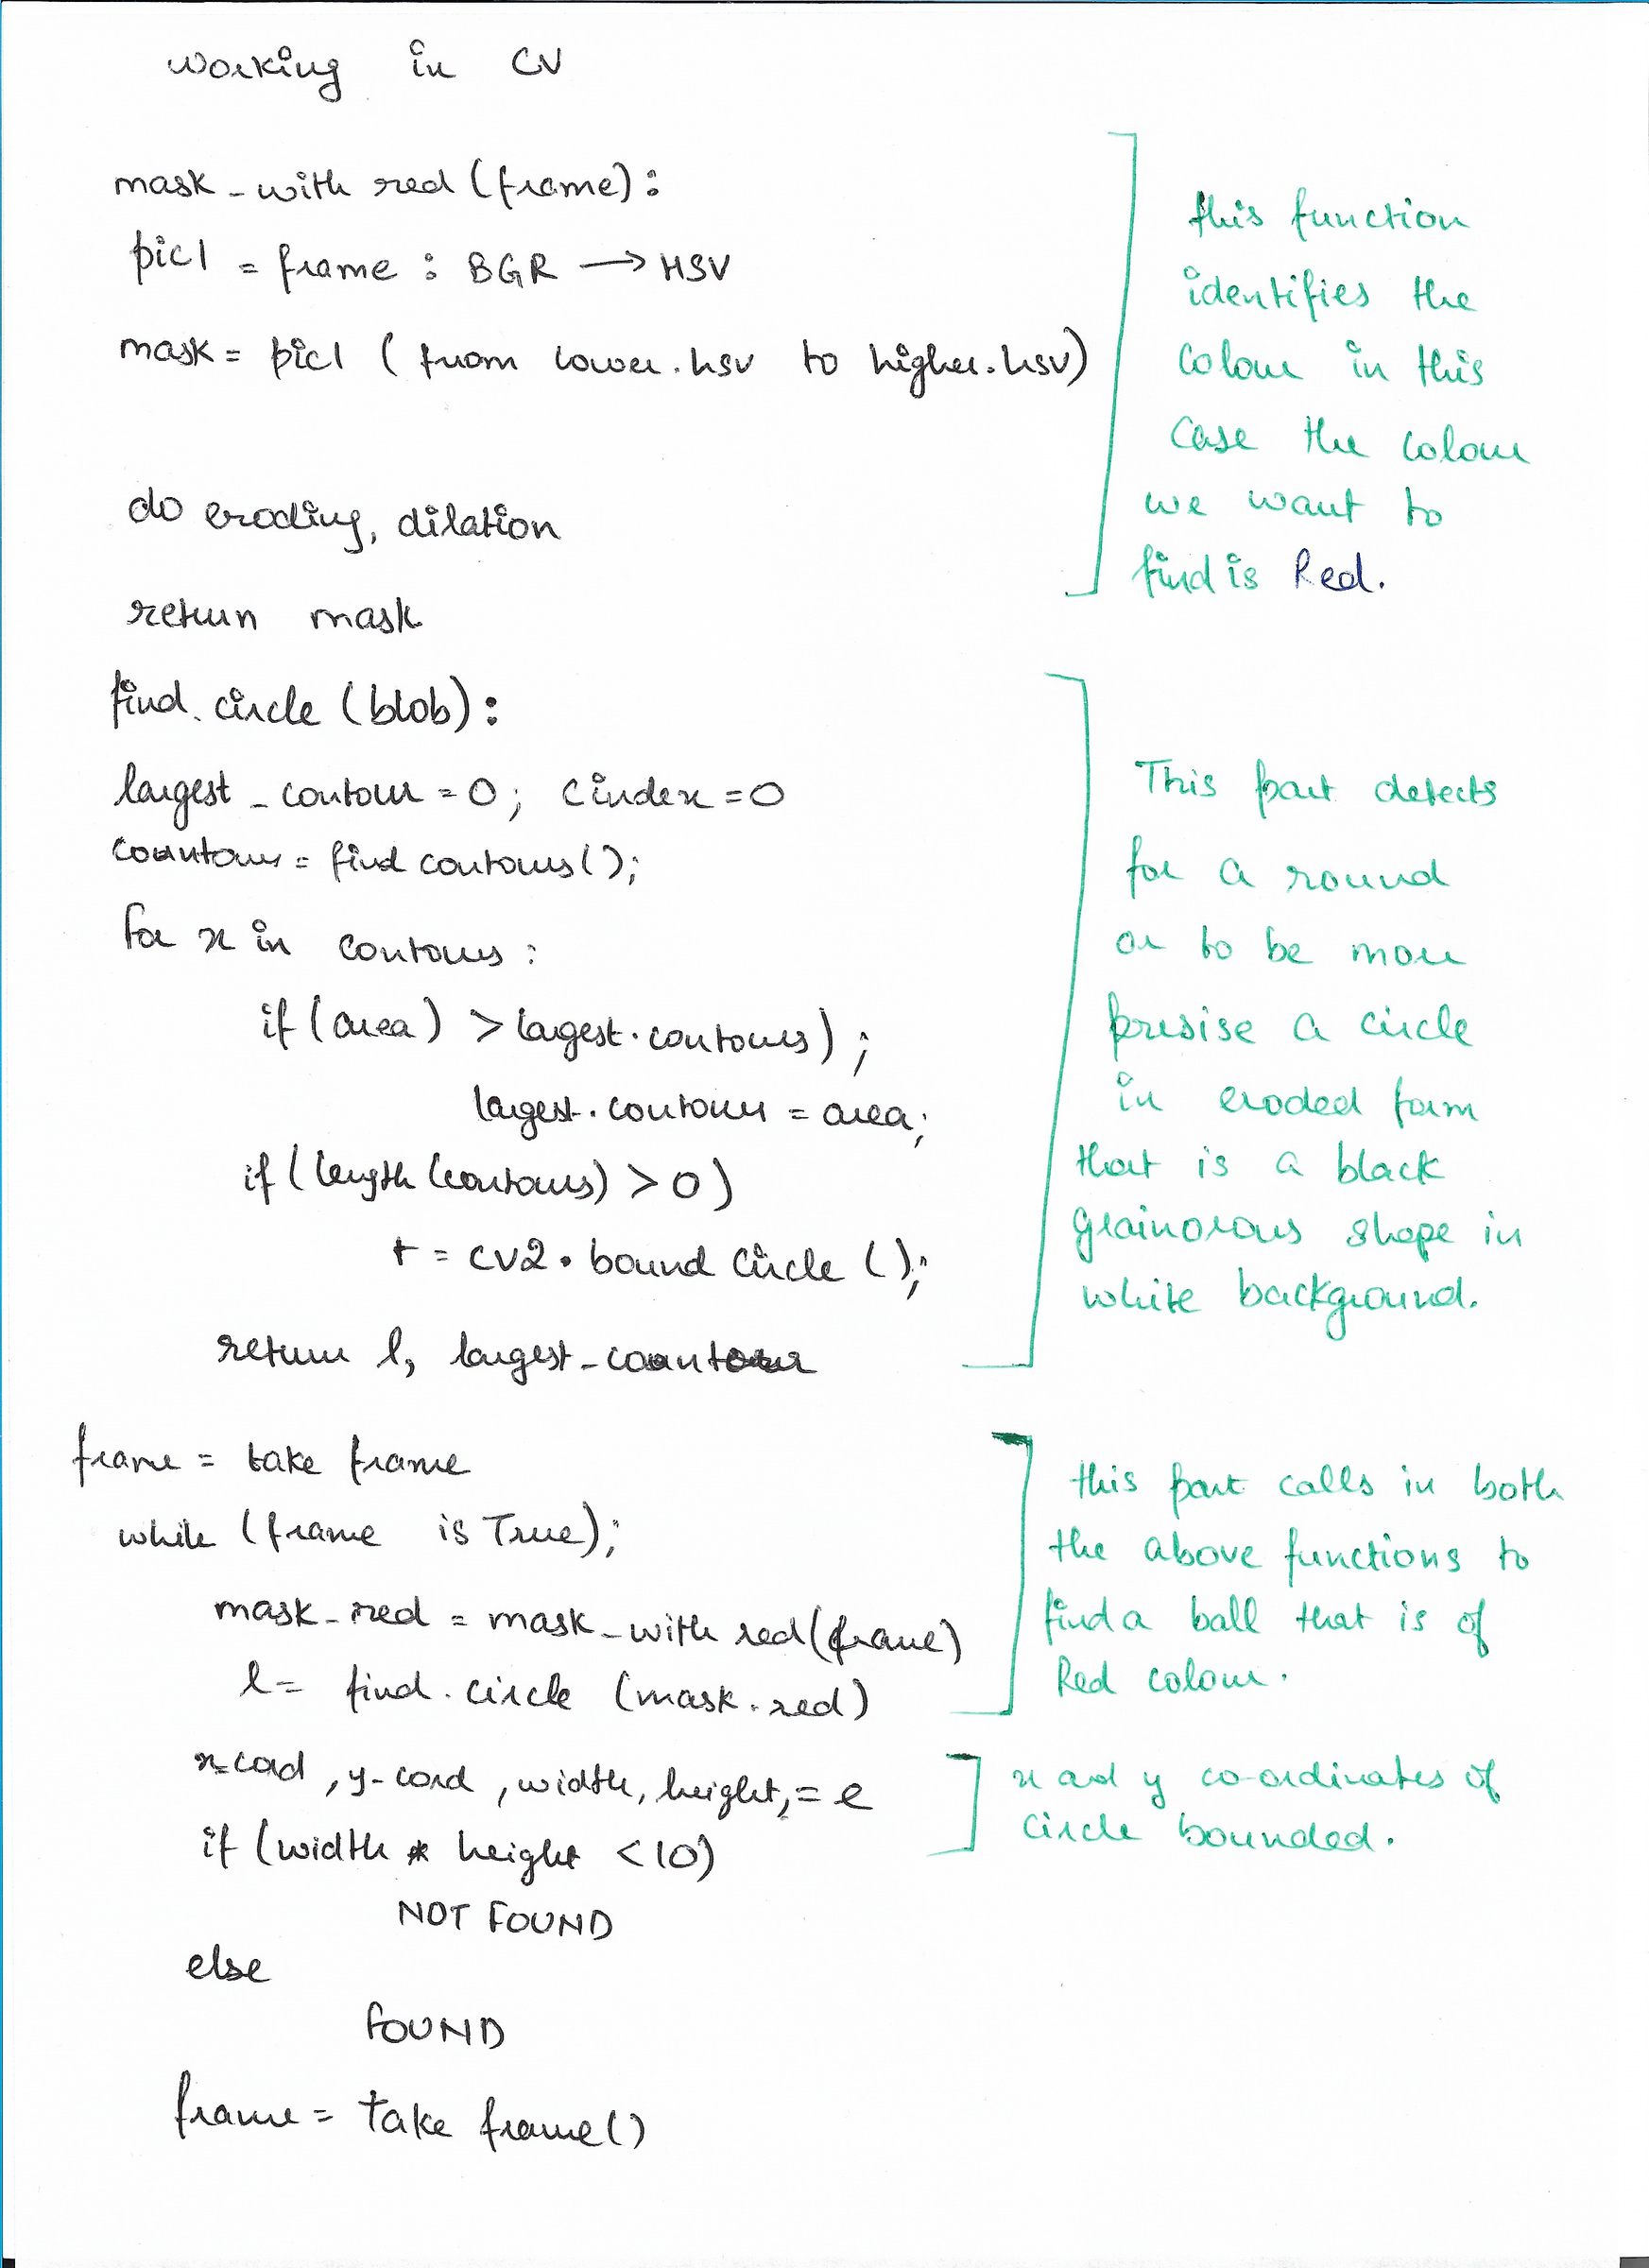 working in CV
mask_with red (frame):
pic1 = frame : BGR → HSV
mask = pic1 (from lower.hsv to higher.hsv)
do eroding, dilation
return mask
this function
identifies the
colour in this
case the colour
we want to
find is Red.
find.circle (blob):
largest_contour = 0; cindex = 0
countour = find contours();
for x in contours:
if (area) > largest.contours);
largest.contour = area;
if (length (contours) > 0)
r = cv2.bound circle ();
return l, largest_contour
This part detects
for a round
or to be more
presise a circle
in eroded form
that is a black
grainorous shape in
white background.
frame = take frame
while (frame is True);
mask_red = mask_with red (frame)
l = find.circle (mask.red)
this part calls in both
the above functions to
find a ball that is of
Red colour.
x-cord, y-cord, width, height, = l
if (width * height < 10)
NOT FOUND
else
FOUND
frame = take frame ()
x ad y co-ordinates of
circle bounded.